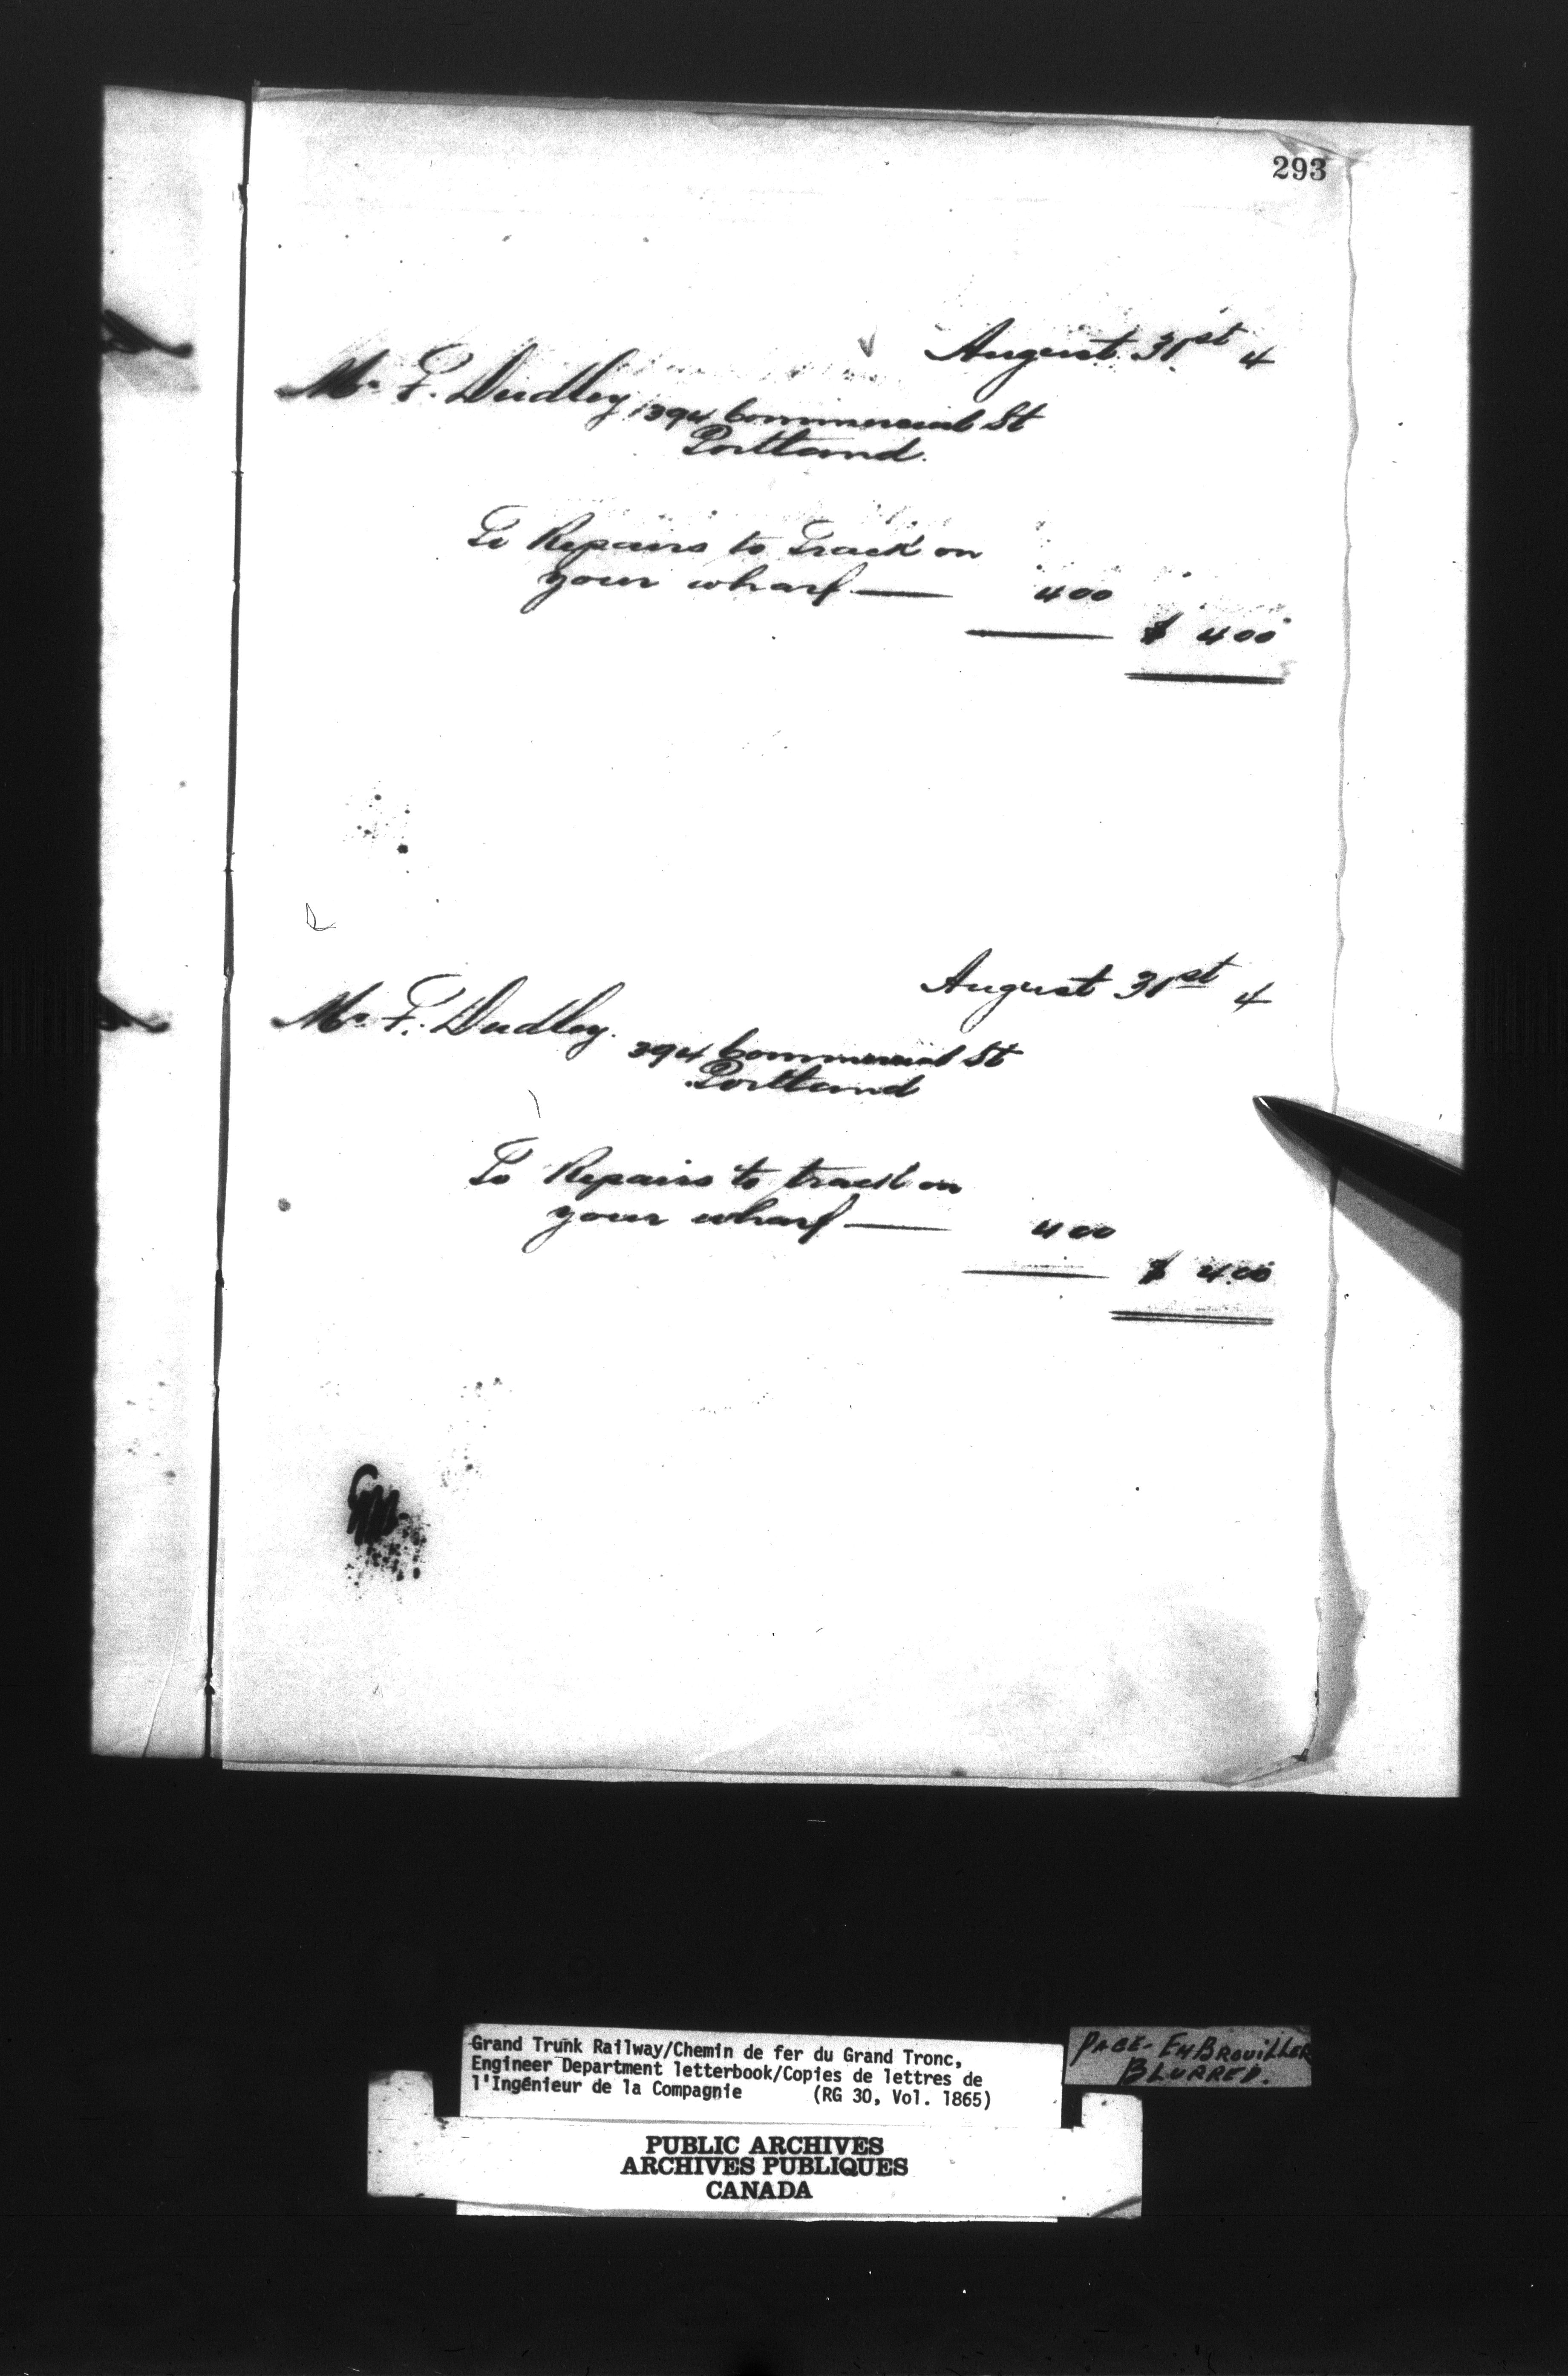 293
August 31st 4
Mr F. Dudley, 394 Commercial St
Portland.
To Repairs to Track on
your wharf — 400
$ 400
August 31st 4
Mr. F. Dudley.
394 Commercial St
Portland
To Repairs to track on
your wharf — 400
$ 4.00
Grand Trunk Railway/Chemin de fer du Grand Tronc,
Engineer Department letterbook/Copies de lettres de
l'Ingénieur de la Compagnie (RG 30, Vol. 1865)
PAGE-EMBROUILLER
BLURRED.
PUBLIC ARCHIVES
ARCHIVES PUBLIQUES
CANADA